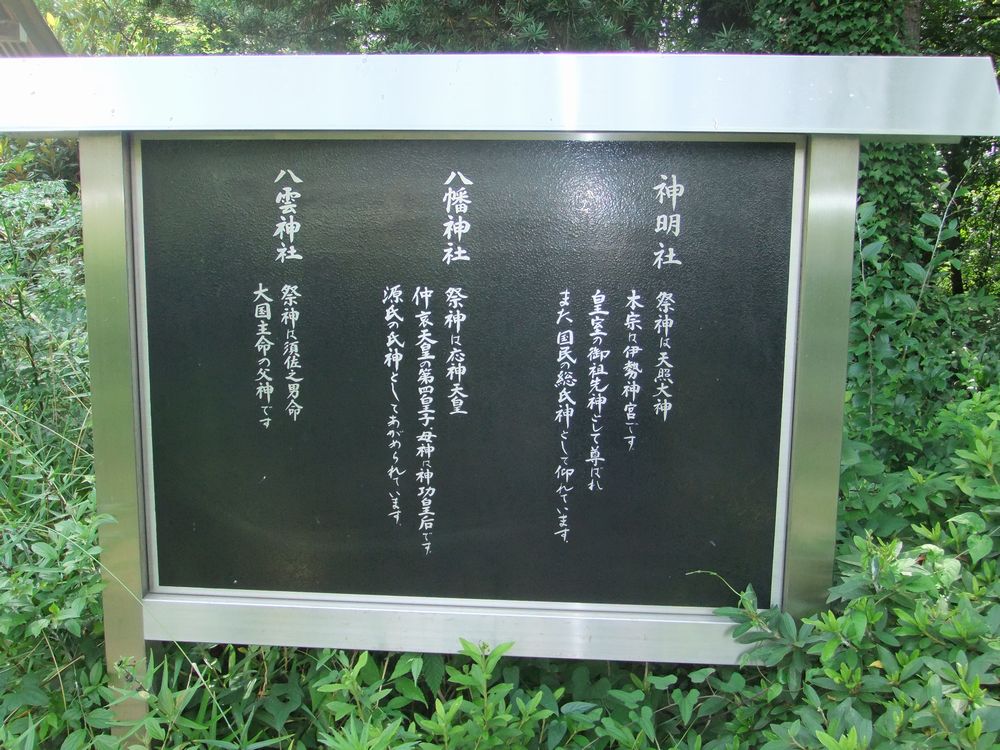 神明社
祭神は天照大神
本宗は伊勢神宮です
皇室の御祖先神として尊ばれ
また国民の総氏神として仰れています
八幡神社
祭神は応神天皇
仲哀天皇の第四皇子母神は神功皇后です
源氏の氏神としてあがめられています
八雲神社
祭神は須佐之男命
大国主命の父神です